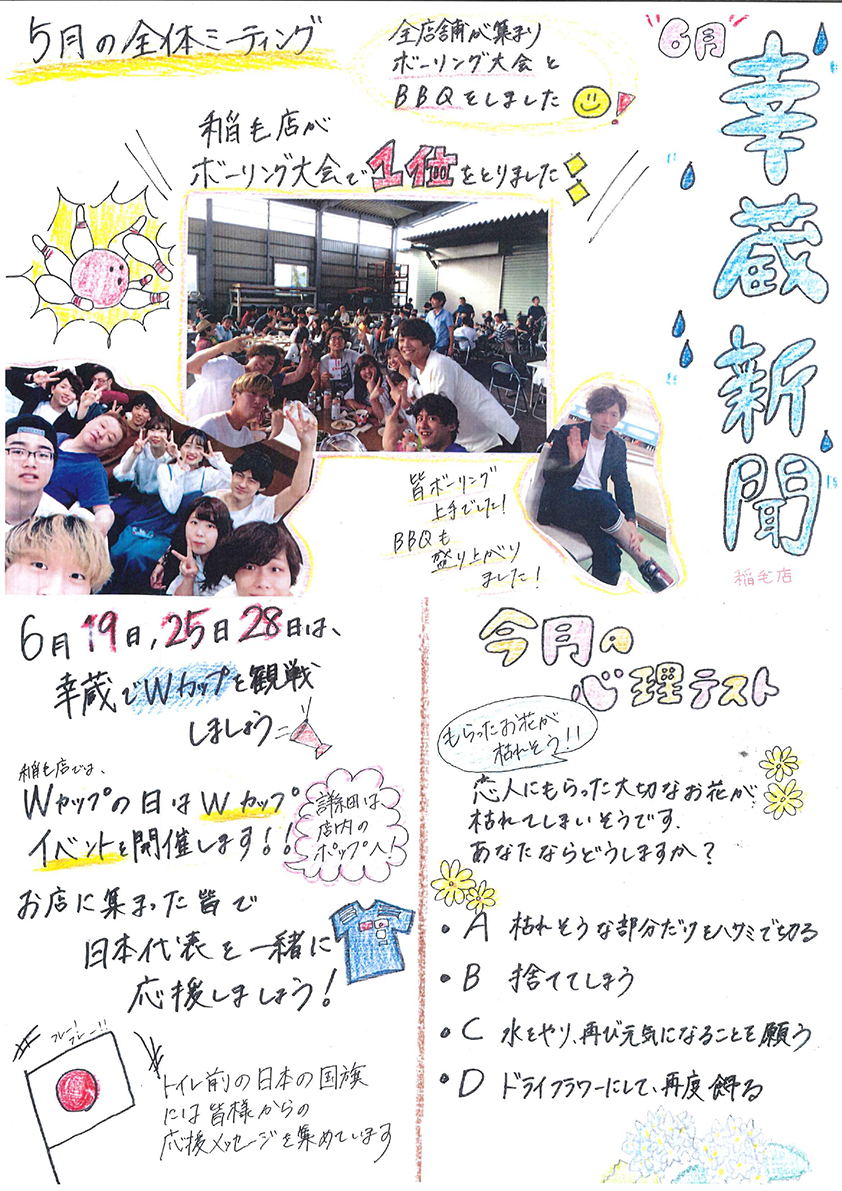 "6月"
幸蔵新聞
稲毛店
5月の全体ミーティング
全店舗が集まり
ボーリング大会と
BBQをしました
稲毛店が
ボーリング大会で1位をとりました
皆ボーリング
上手でした!
BBQも
盛り上がり
ました!
6月19日,25日28日は、
幸蔵でWカップを観戦
しましょう
稲毛店では、
Wカップの日はWカップ
イベントを開催します!!
詳細は、
店内の
ポップへ!
お店に集まった皆で
日本代表を一緒に
応援しましょう!
フレー!
フレー!!
トイレ前の日本の国旗
には皆様からの
応援メッセージを集めています
今月の
心理テスト
もらったお花が
枯れそう!!
恋人にもらった大切なお花が
枯れてしまいそうです.
あなたならどうしますか?
・A 枯れそうな部分だけをハサミで切る
・B 捨ててしまう
・C 水をやり、再び元気になることを願う
・D ドライフラワーにして、再度飾る